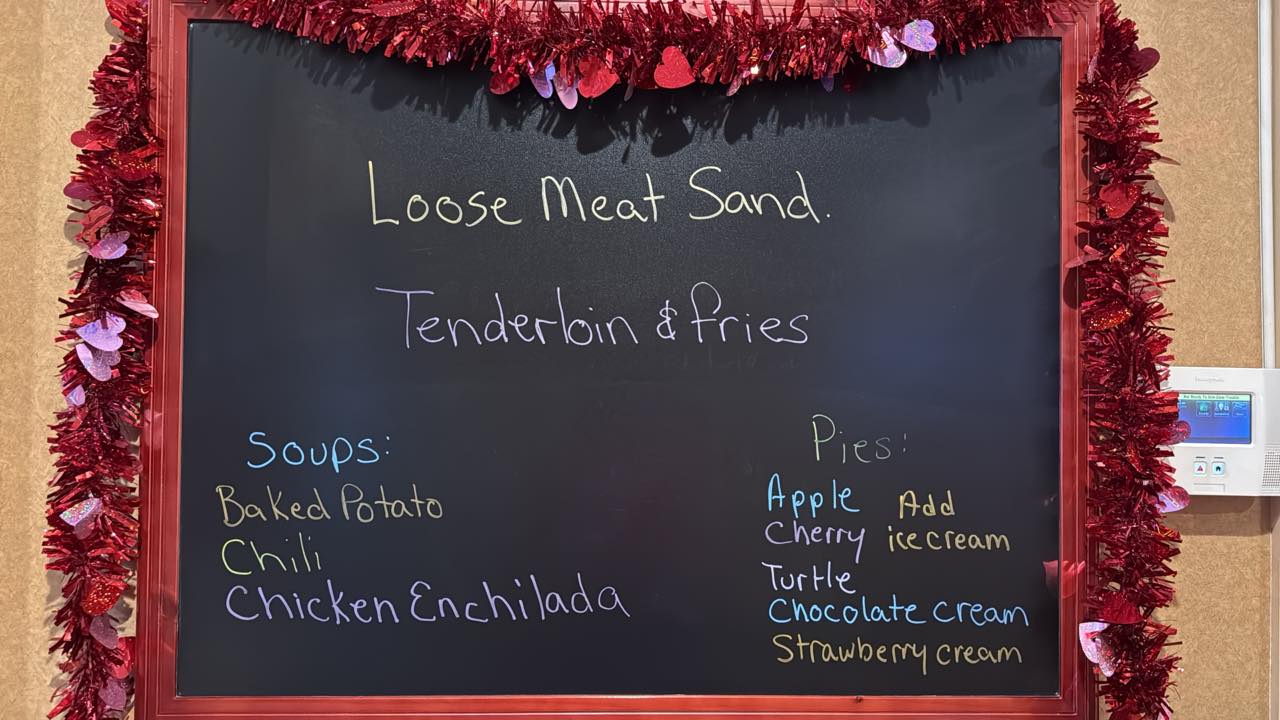 Loose Meat Sand.
Tenderloin & fries
Soups:
Baked Potato
Chili
Chicken Enchilada
Pies:
Apple
Cherry
Add
ice cream
Turtle
Chocolate cream
Strawberry cream